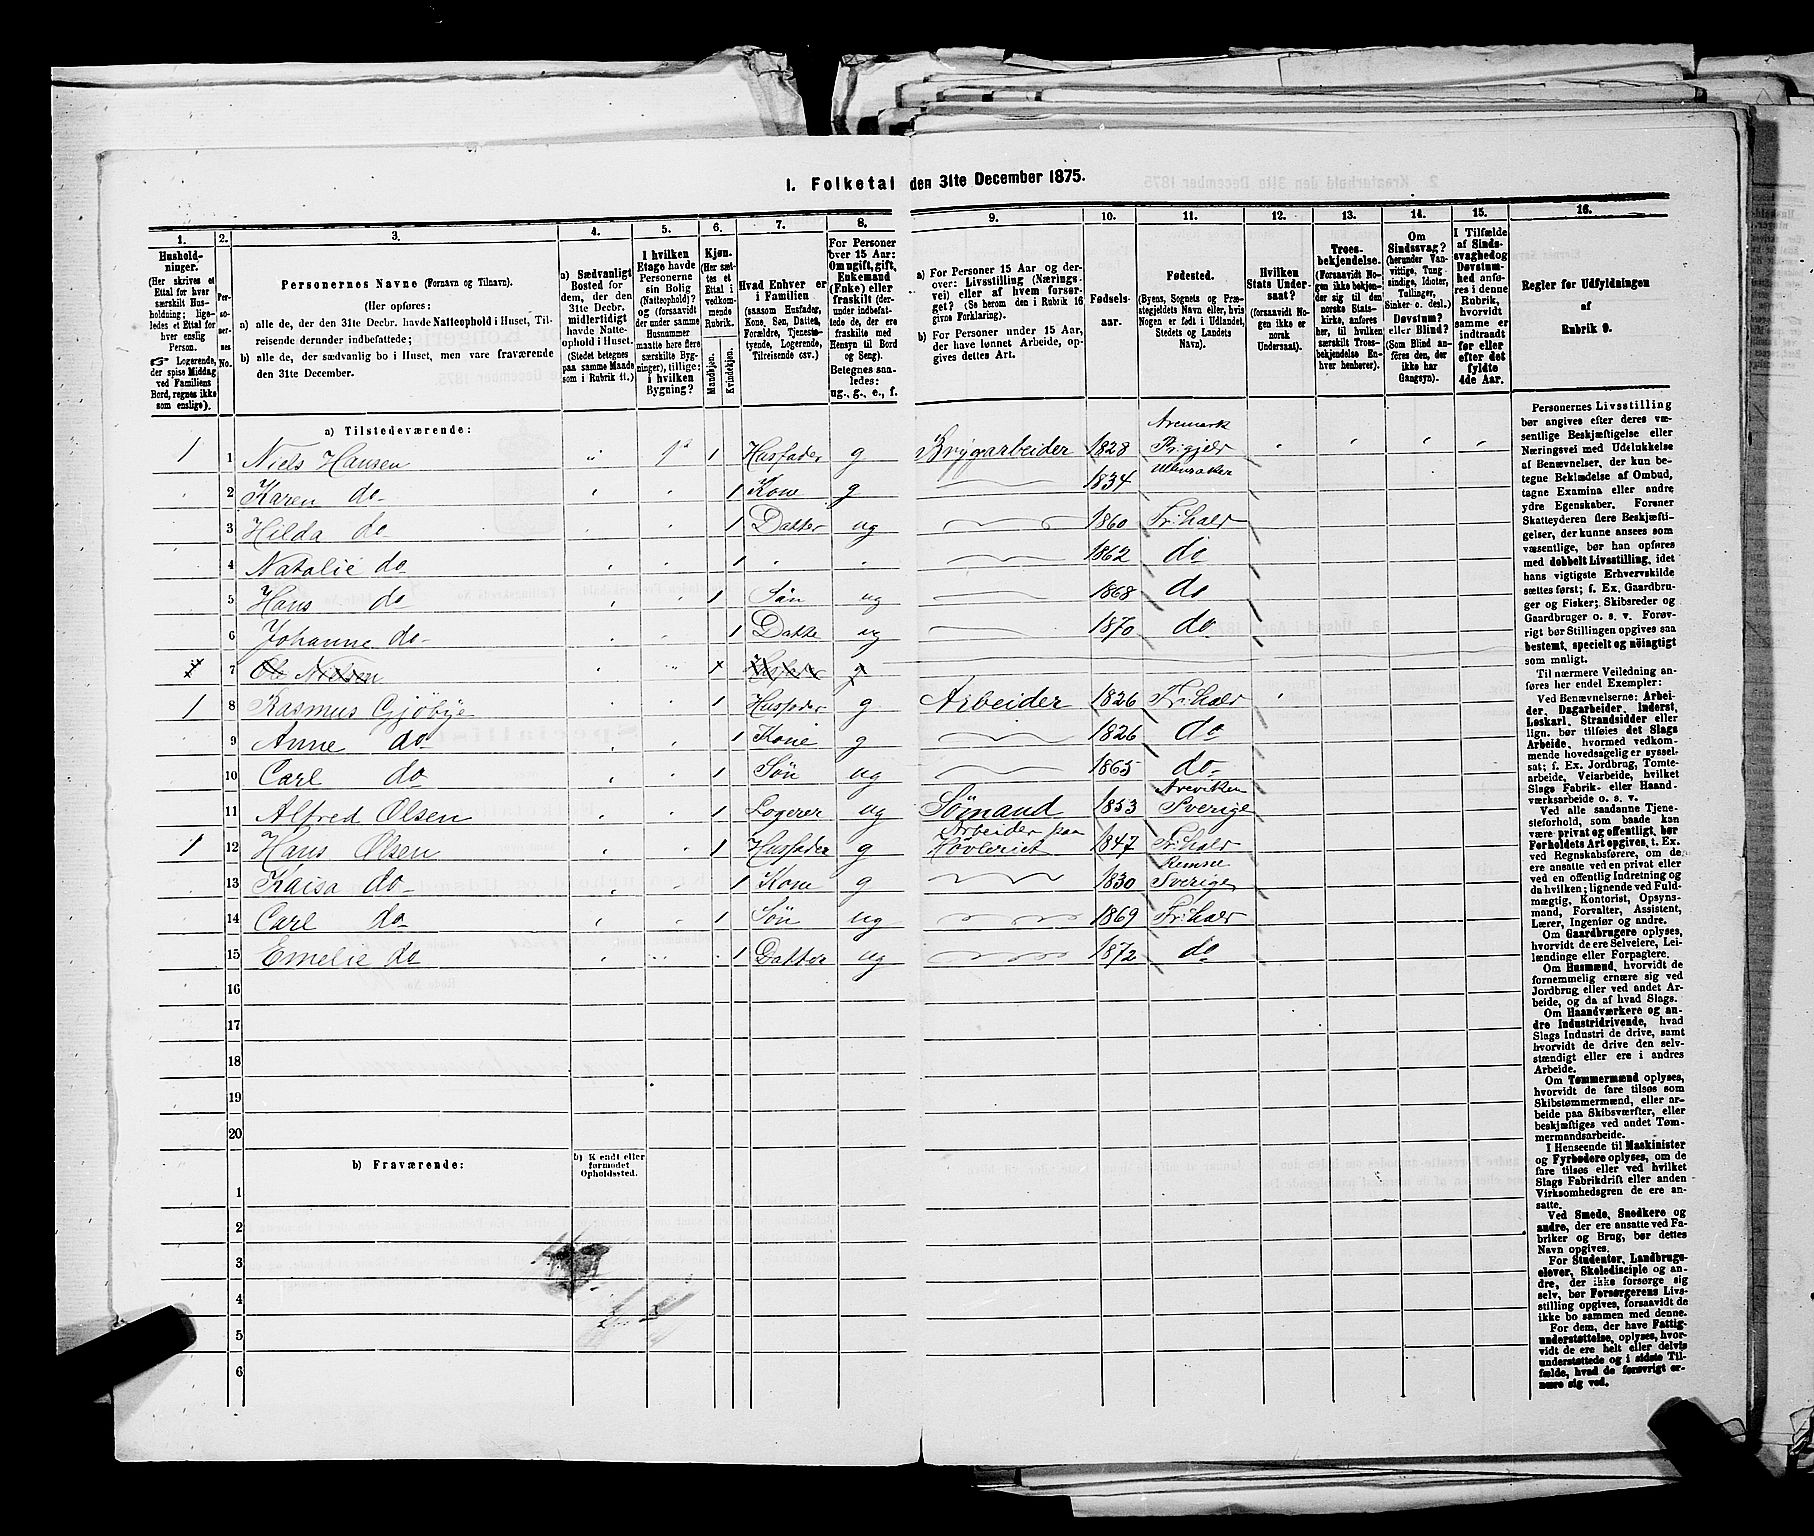 1. Folketal den 31te December 1875.
1. 2. 3. 4. 5. 6. 7. 8. 9. 10. 11. 12. 13. 14. 15. 16.
Husholdninger.
(Her skrives et
Ettal for hver
særskilt Husholdning;
ligeledes et Ettal for
hver enslig
Person.
☞ Logerende,
der spise Middag
ved Familiens
Bord, regnes ikke
som enslige).
Personernes No.
Personernes Navne (Fornavn og Tilnavn).
(Her opføres:
a) alle de, der den 31te Decbr. havde Natteophold i Huset, Tilreisende derunder indbefattede;
b) alle de, der sædvanlig bo i Huset, men vare fraværende
den 31te December.
a) Sædvanligt
Bosted for
dem, der den
31te Decbr.
midlertidigt
havde Natteophold i Huset.
(Stedet betegnes
paa samme Maade
som i Rubrik 11.)
I hvilken
Etage havde
Personerne
sin Bolig
(Natteophold)?
(forsaavidt
der under samme
Husnummer
maatte høre flere
særskilte Bygninger), tillige:
i hvilken
Bygning?
Kjøn.
(Her sættes et
Ettal i
vedkommende
Rubrik.
Mandkjøn.
Kvindekjøn.
Hvad Enhver er
i Familien
(saasom Husfader,
Kone, Søn, Datter,
Forældre, Tjenestetyende, Logerende,
Tilreisende osv.).
For Personer
over 15 Aar:
Om ugift, gift,
Enkemand
(Enke) eller
fraskilt (derunder indbefattede de, der
ere fraskilte med
Hensyn til Bord
og Seng).
Betegnes saaledes:
ug., g., e., f.
a) For Personer 15 Aar og derover: Livsstilling (Næringsvei) eller af hvem forsørget? (Se herom den i Rubrik 16
givne Forklaring).
b) For Personer under 15 Aar,
der have lønnet Arbeide, opgives dettes Art.
Fødselsaar.
Fødested.
(Byens, Sognets og Præstegjeldets Navn eller, hvis
Nogen er født i Udlandet,
Stedets og Landets
Navn).
Hvilken
Stats Undersaat?
(forsaavidt Nogen ikke er
norsk
Undersaat).
Troesbekjendelse.
(Forsaavidt Nogen ikke bekjender sig til den
norske Statskirke, anføres,
til hvilken
særskilt Troesbekjendelse Enhver henhører).
Om
Sindssvag?
(herunder Vanvittige, Tungsindige, Idioter,
Tullinger,
Sinker o. desl.)
Døvstum?
eller Blind?
(Som Blind anføres den, der
ikke har
Gangsyn).
I Tilfælde
af Sindssvaghed og
Døvstumhed anføres i denne
Rubrik,
hvorvidt
samme er
indtraadt
før eller
efter det
fyldte
4de Aar.
Regler for Udfyldningen
af
Rubrik 9.
a) Tilstedeværende:
1 1 Niels Hansen 1 Husfader g Brygarbeider 1828 Aremark
2 Karen do 1 Kone g 1834 Ullensaker
3 Hilda do 1 Datter ug 1860 Fr:hald
4 Natalie do 1 1862 do
5 Hans do 1 Søn ug 1868 do
6 Johanne do 1 Datte ug 1870 do
7 Ole Nielsen
1 8 Rasmus Gjöbye 1 Husfader g Arbeider 1826 Fr:hald
9 Anne do 1 Kone g 1826 do
10 Carl do 1 Søn ug 1865 do
11 Alfred Olsen 1 Logerer ug Sömand 1853 Sverige
1 12 Hans Olsen 1 Husfader g Arbeider paa Høvleriet 1847 Fr:hald
13 Kaisa do 1 Kone g 1830 Sverige
14 Carl do 1 Søn ug 1869 Fr:hald
15 Emelie do 1 Datter ug 1872 do
16
17
18
19
20
b) Fraværende:
b) Kendt eller
formodet
Opholdssted.
1
2
3
4
5
6
Personernes Livsstilling
bør angives efter deres væsentlige Beskjæftigelse eller
Næringsvei med Udelukkelse
af Benævnelser, der kun betegne Beklædelse af Ombud,
tagne Examina eller andre
ydre Egenskaber. Forener
Skatteyderen flere Beskjæftigelser, der kunne ansees som
væsentlige, bør han opføres
med dobbelt Livsstilling, idet
hans vigtigste Erhvervskilde
sættes først; f. Ex. Gaardbruger og Fisker; Skibsreder og
Gaardbruger o. s. v. Forøvrigt bør Stillingen opgives saa
bestemt, specielt og nöiagtigt
som muligt.
Til nærmere Veiledning anføres her endel Exempler:
Ved Benævnelserne: Arbeider, Dagarbeider, Inderst,
Løskarl, Strandsidder eller
lign. bør tilføies det Slags
Arbeide, hvormed vedkommende hovedsagelig er sysselsat; f. Ex. Jordbrug, Tomtearbeide, Veiarbeide, hvilket
Slags Fabrik- eller Haandværksarbeide o. s. v.
Ved alle saadanne Tjenesteforhold, som baade kan
være privat og offentligt, bør
Forholdets Art opgives, f. Ex.
ved Regnskabsførere, om de
ere ansatte ved en privat eller
ved en offentlig Indretning og
da hvilken; lignende ved Fuldmægtig, Kontorist, Opsynsmand, Forvalter, Assistent,
Lærer, Ingeniør og andre.
Om Gaardbrugere oplyses,
hvorvidt de ere Selveiere, Leilændinge eller Forpagtere.
Om Husmænd, hvorvidt de
fornemmelig ernære sig ved
Jordbrug eller ved andet Arbeide, og da af hvad Slags.
Om Haandværkere og andre Industridrivende, hvad
Slags Industri de drive, samt
hvorvidt de drive den selvstændigt eller ere i andres
Arbeide.
Om Tømmermænd oplyses,
hvorvidt de fare tilsøs som
Skibstømmermænd, eller arbeide paa Skibsværfter, eller
beskjæftiges ved andet Tømmermandsarbeide.
I Henseende til Maskinister
og Fyrbødere oplyses, om de
fare tilsøs eller ved hvilket
Slags Fabrikdrift eller anden
Virksomhedsgren de ere ansatte.
Ved Smede, Snedkere og
andre, der ere ansatte ved Fabriker og Brug, bør dettes
Navn opgives.
For Studenter, Landbrugselever, Skoledisciple og andre, der ikke forsørge sig
selv, bør Forsørgerens Livsstilling opgives, forsaavidt de
ikke bo sammen med denne.
For dem, der have Fattigunderstøttelse, oplyses, hvorvidt de ere helt eller delvis
understøttede og i sidste Tilfælde, hvad de forøvrigt ernære sig ved.